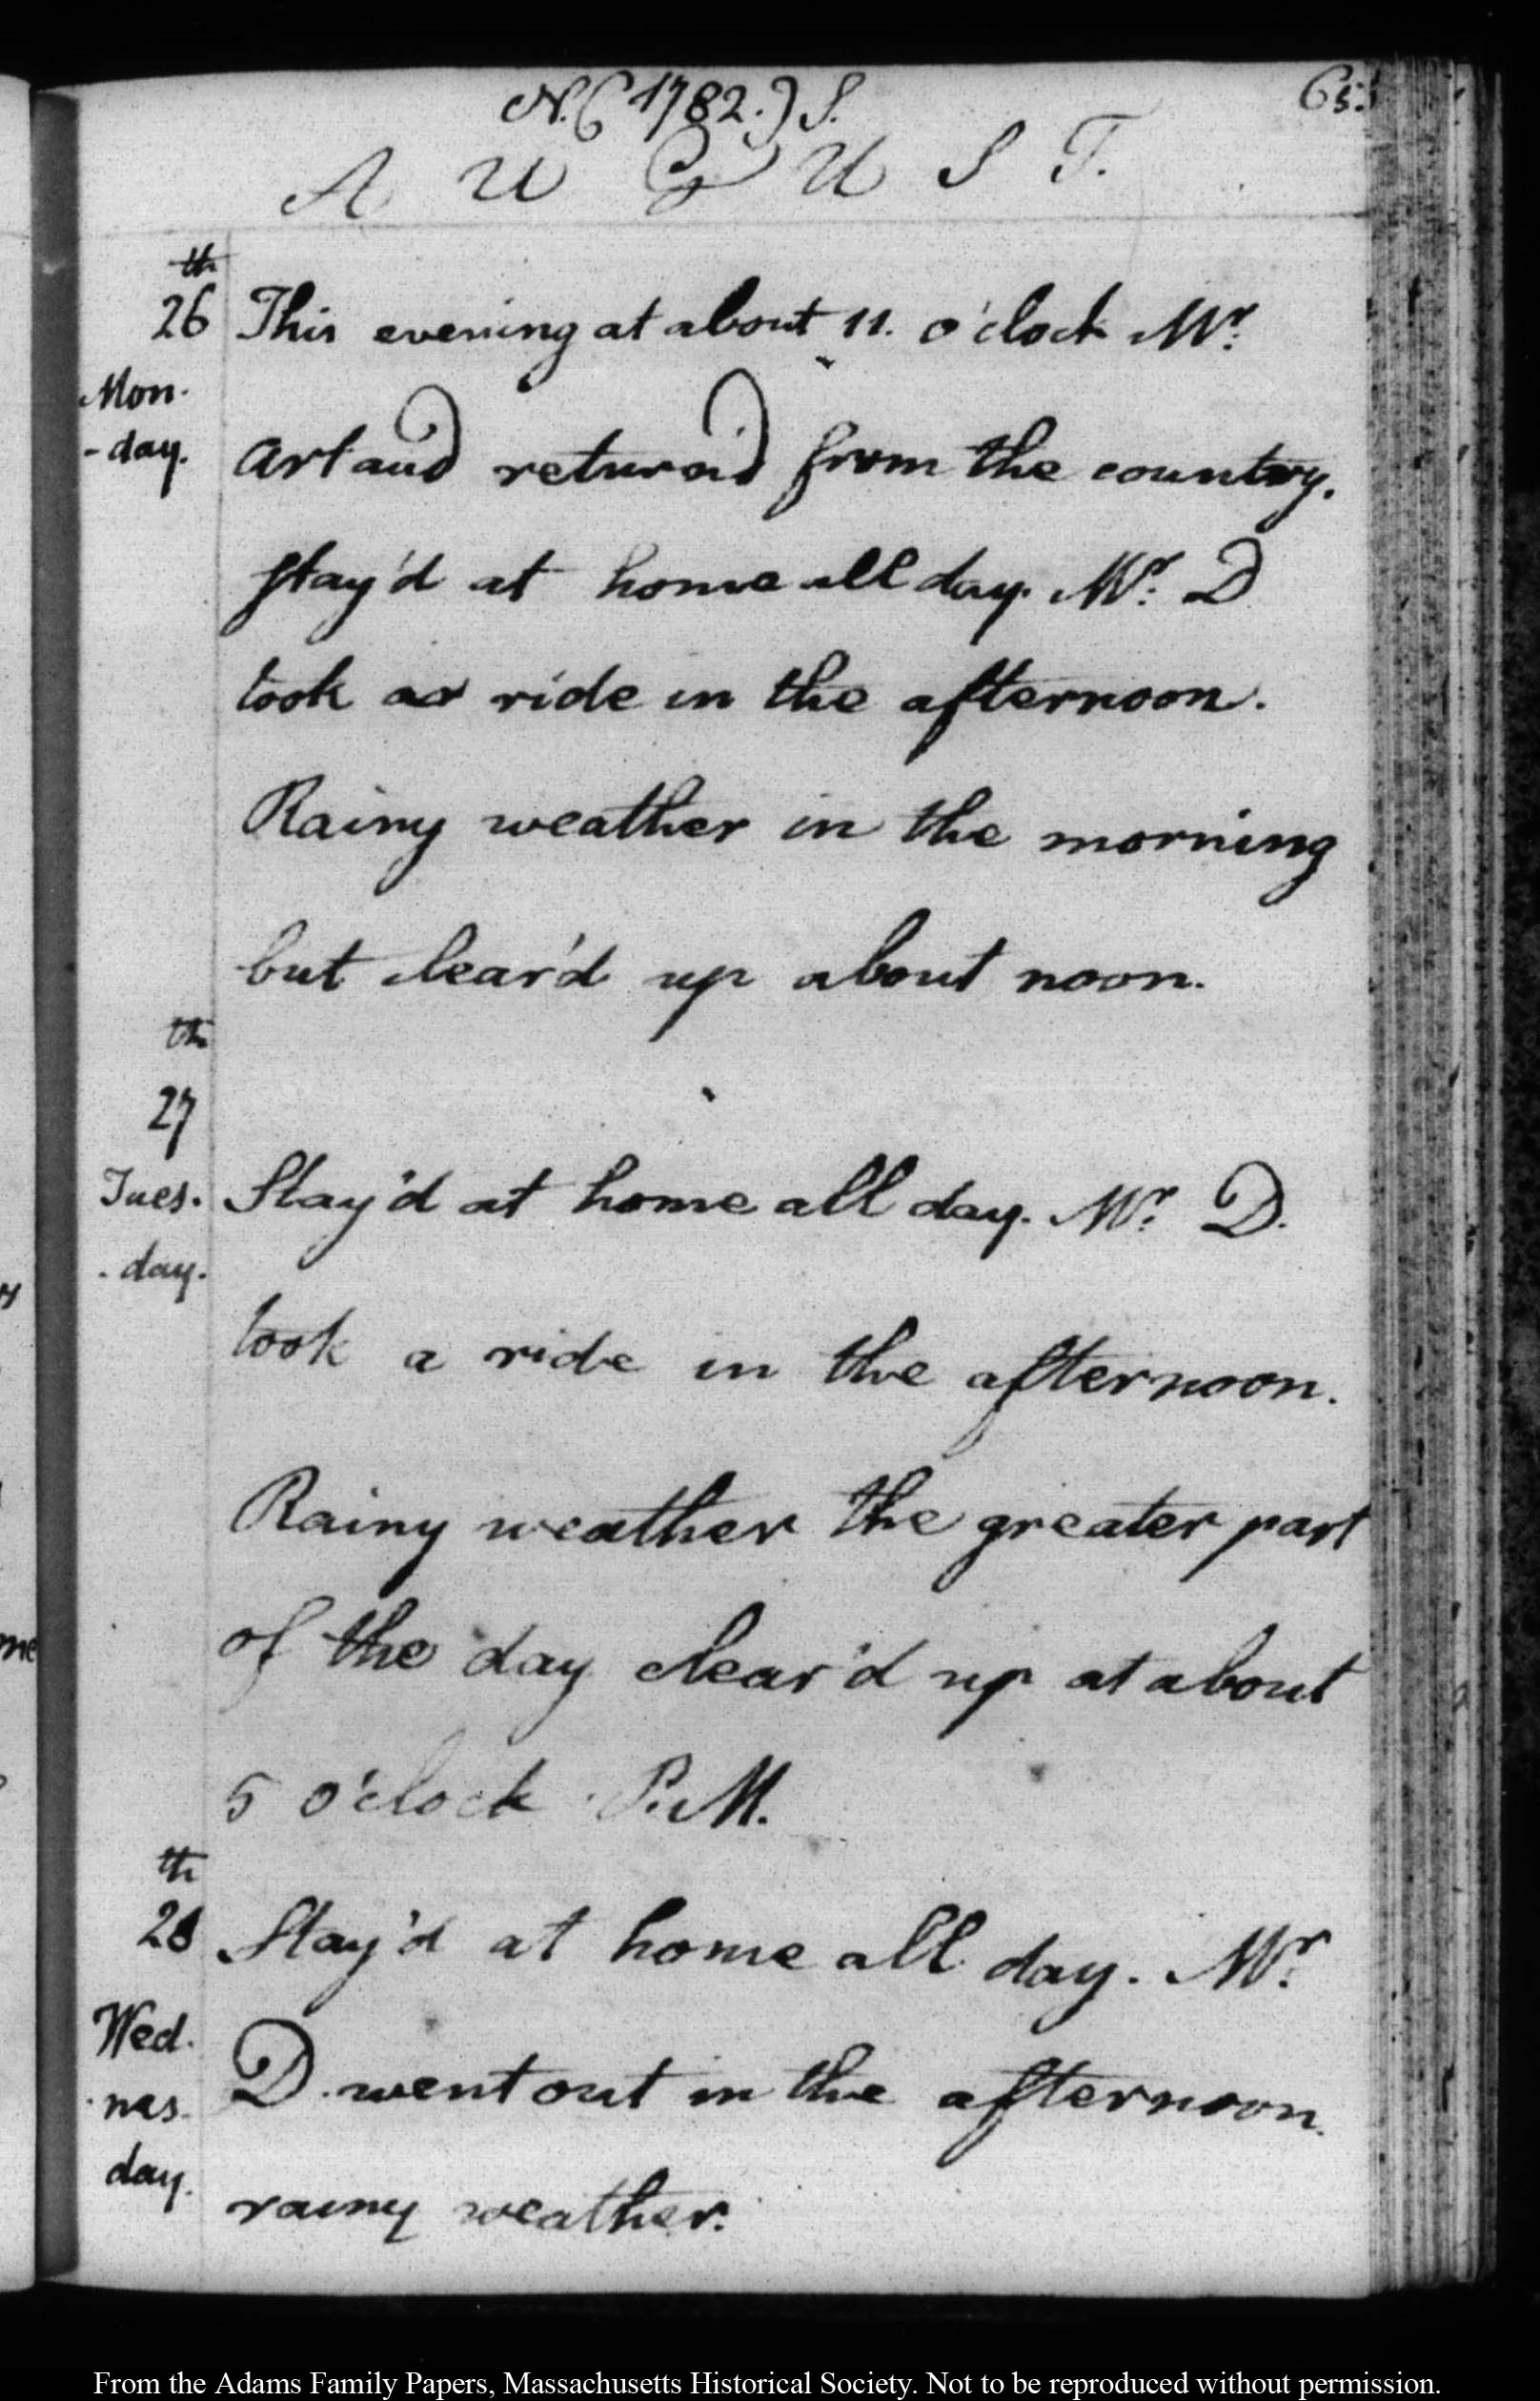 N.(1782.)S.
65.
A U G U S T.
th
26 This evening at about 11. o'clock Mr.
Mon-
-day. Artaud return'd from the country.
stay'd at home all day. Mr. D
took a ride in the afternoon.
Rainy weather in the morning
but clear'd up about noon.
th
27
Tues. Stay'd at home all day. Mr. D.
-day.
took a ride in the afternoon.
Rainy weather the greater part
of the day clear'd up at about
5 o'clock P.M.
th
28 Stay'd at home all day. Mr.
Wed.
-nes- D. went out in the afternoon.
day.
rainy weather.
From the Adams Family Papers, Massachusetts Historical Society. Not to be reproduced without permission.